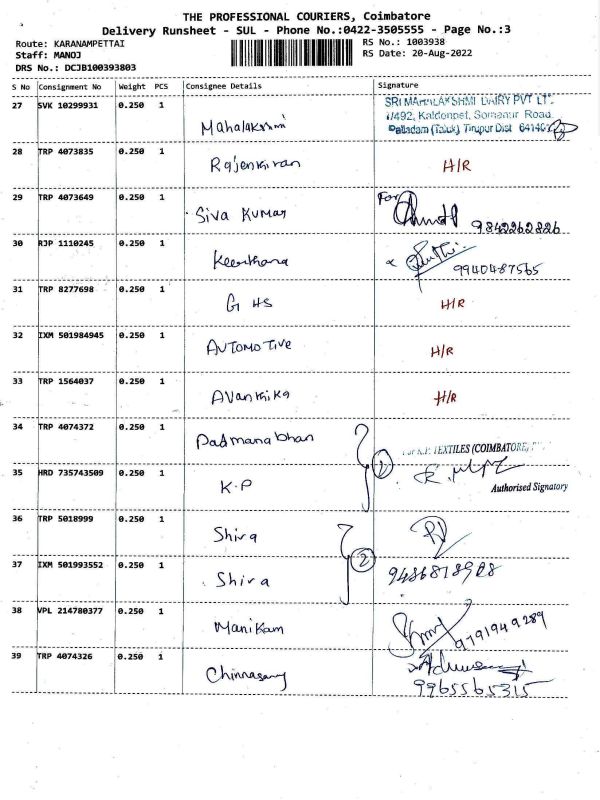 THE PROFESSIONAL COURIERS, Coimbatore
Delivery Runsheet - SUL - Phone No.:0422-3505555 - Page No.:3
Route: KARANAMPETTAI RS No.: 1003938
Staff: MANOJ RS Date: 20-Aug-2022
DRS No.: DCJB100393803
S No Consignment No Weight PCS Consignee Details Signature
27 SVK 10299931 0.250 1 Mahalakshmi SRI MAHALAKSHMI DAIRY PVT LT
1/492, Kaldonpet, Somanur Road
Palladam (Taluk) Tirupur Dist 6414
28 TRP 4073835 0.250 1 Rajenkiran H/R
29 TRP 4073649 0.250 1 Siva Kumar For
9842262826
30 RJP 1110245 0.250 1 Keerthana
9940487565
31 TRP 8277698 0.250 1 G HS H/R
32 IXM 501984945 0.250 1 AUTOMOTIVE H/R
33 TRP 1564037 0.250 1 Avanthika H/R
34 TRP 4074372 0.250 1 Padmanabhan For K.P. TEXTILES (COIMBATORE)
1
35 HRD 735743509 0.250 1 K.P Authorised Signatory
36 TRP 5018999 0.250 1 Shiva
2
37 IXM 501993552 0.250 1 Shiva 9486818908
38 VPL 214780377 0.250 1 Manikam 9791949289
39 TRP 4074326 0.250 1 Chinnasamy
9965565315